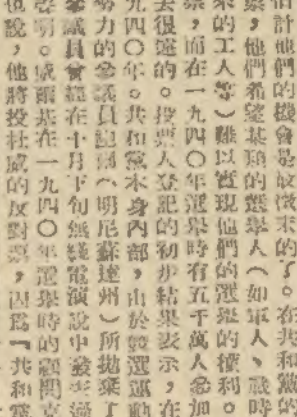 估計他們的機會是微末的了。在共和黨的
,他們希望某項的選舉人(如軍人、戰時
來的工人等)難以實現他們的選舉的權利。
票,而在一九四〇年選舉時有五千萬人參加
去很遠的。投票人登記的初步結果表示,在
九四〇年。共和黨本身內部,由於競選運動
勢力的參議員爾(明尼蘇達州)所拋棄了
參議員曾經在十月下旬無綫電演說中發表過
聲明。威爾基在一九四〇年選舉時的顧問
也說,他將投杜威的反對票,因爲「共和黨